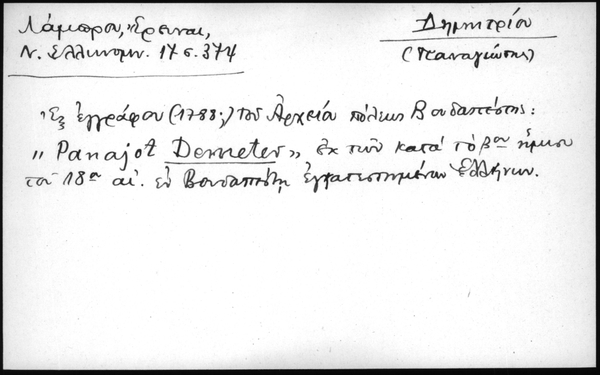 Λάμπρου, Ἔρευναι,
Ν. Ἑλλινομν. 17 σ. 374
Δημητρίου
(Παναγιώτης)
Ἐξ ἐγγράφου (1788;) τοῦ Ἀρχείου πόλεως Βουδαπέστης:
„ Panajot Demeter „ ἐκ τῶν κατὰ τὸ βον ἥμισυ
τοῦ 18ου αἰ. ἐν Βουδαπέστῃ ἐγκατεστημένων Ἑλλήνων.